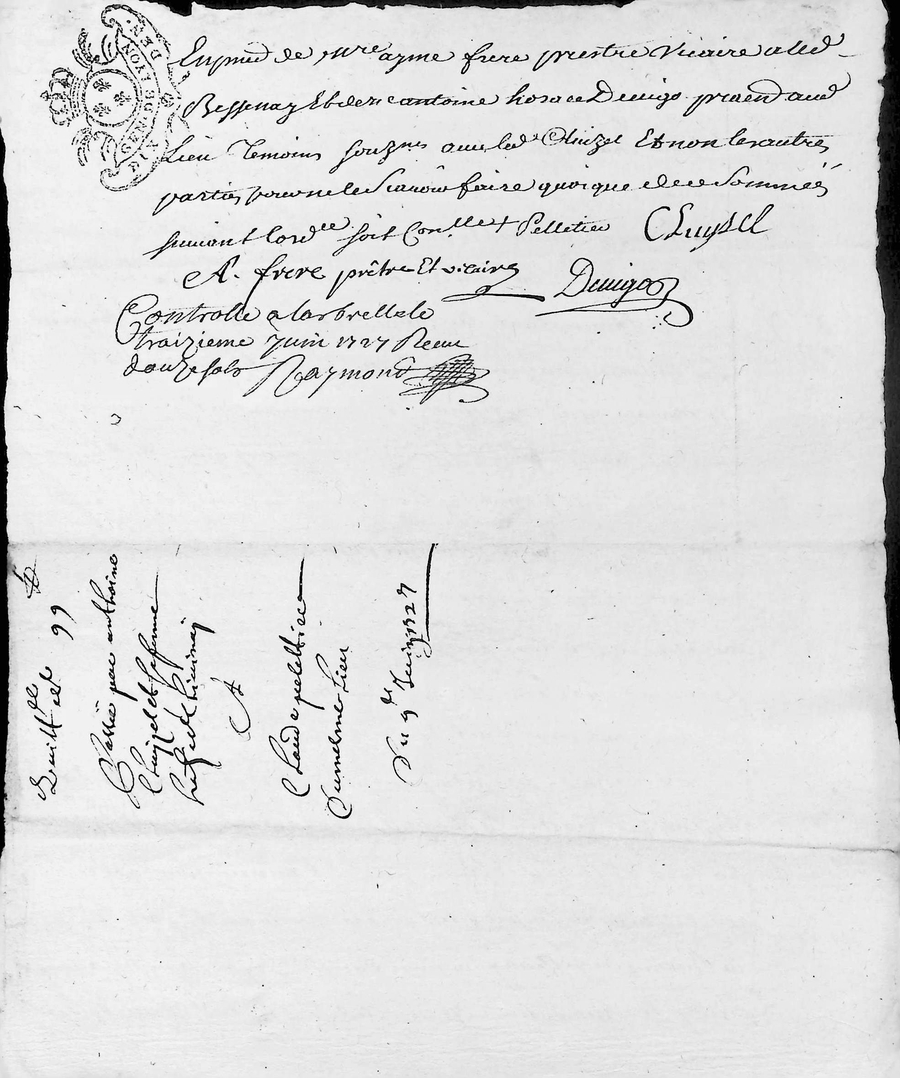 GEN. DE LYON. VIN. DEN.
En pnce de mre ayme frere prestre vicaire aud
Bessenay Et antoine horace Duuigo praend aud
Lieu Temoins souznes auec led Cluizel Et non les autres
parties pour ne le Scauoir faire quoique de ce Sommées
suiuant lordce soit Conlle + Pelletier Cluysel
A. frere prêtre Et vicaire Duuigo
Controlle a larbrelle le
traizieme Juin 1727 Receu
douze sols Raymond
99
Passée par anthoine
Cluizel et sa femme
A
Claude pelletier
Du mesme Lieu
Du 9e Juin 1727